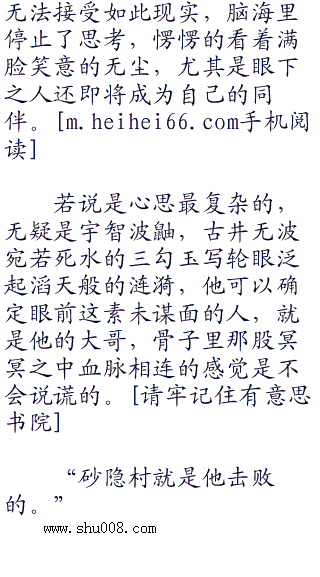 无法接受如此现实，脑海里
停止了思考，愣愣的看着满
脸笑意的无尘，尤其是眼下
之人还即将成为自己的同
伴。[m.heihei66.com手机阅
读]
若说是心思最复杂的，
无疑是宇智波鼬，古井无波
宛若死水的三勾玉写轮眼泛
起滔天般的涟漪，他可以确
定眼前这素未谋面的人，就
是他的大哥，骨子里那股冥
冥之中血脉相连的感觉是不
会说谎的。[请牢记住有意思
书院]
“砂隐村就是他击败
的。”
www.shu008.com